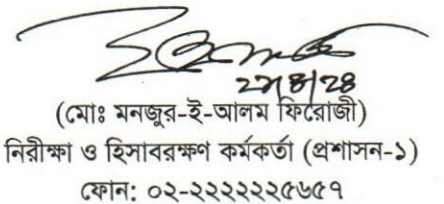 ২৭/৪/২৪
(মোঃ মনজুর-ই-আলম ফিরোজী)
নিরীক্ষা ও হিসাবরক্ষণ কর্মকর্তা (প্রশাসন-১)
ফোন: ০২-২২২২২২৫৬৫৭